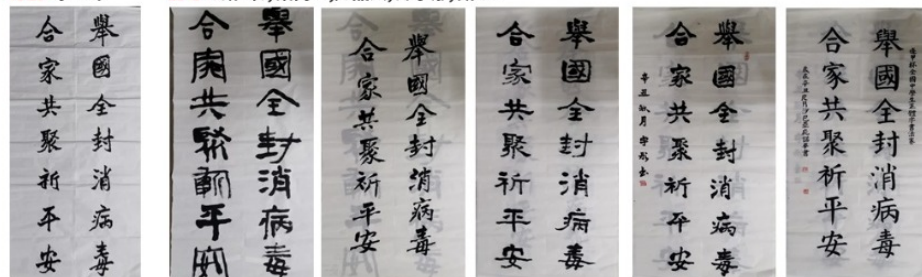 舉國全封消病毒
合家共聚祈平安
舉國全封消病毒
合家共聚祈平安
舉國全封消病毒
合家共聚祈平安
舉國全封消病毒
合家共聚祈平安
舉國全封消病毒
合家共聚祈平安
辛丑秋月
舉國全封消病毒
合家共聚祈平安